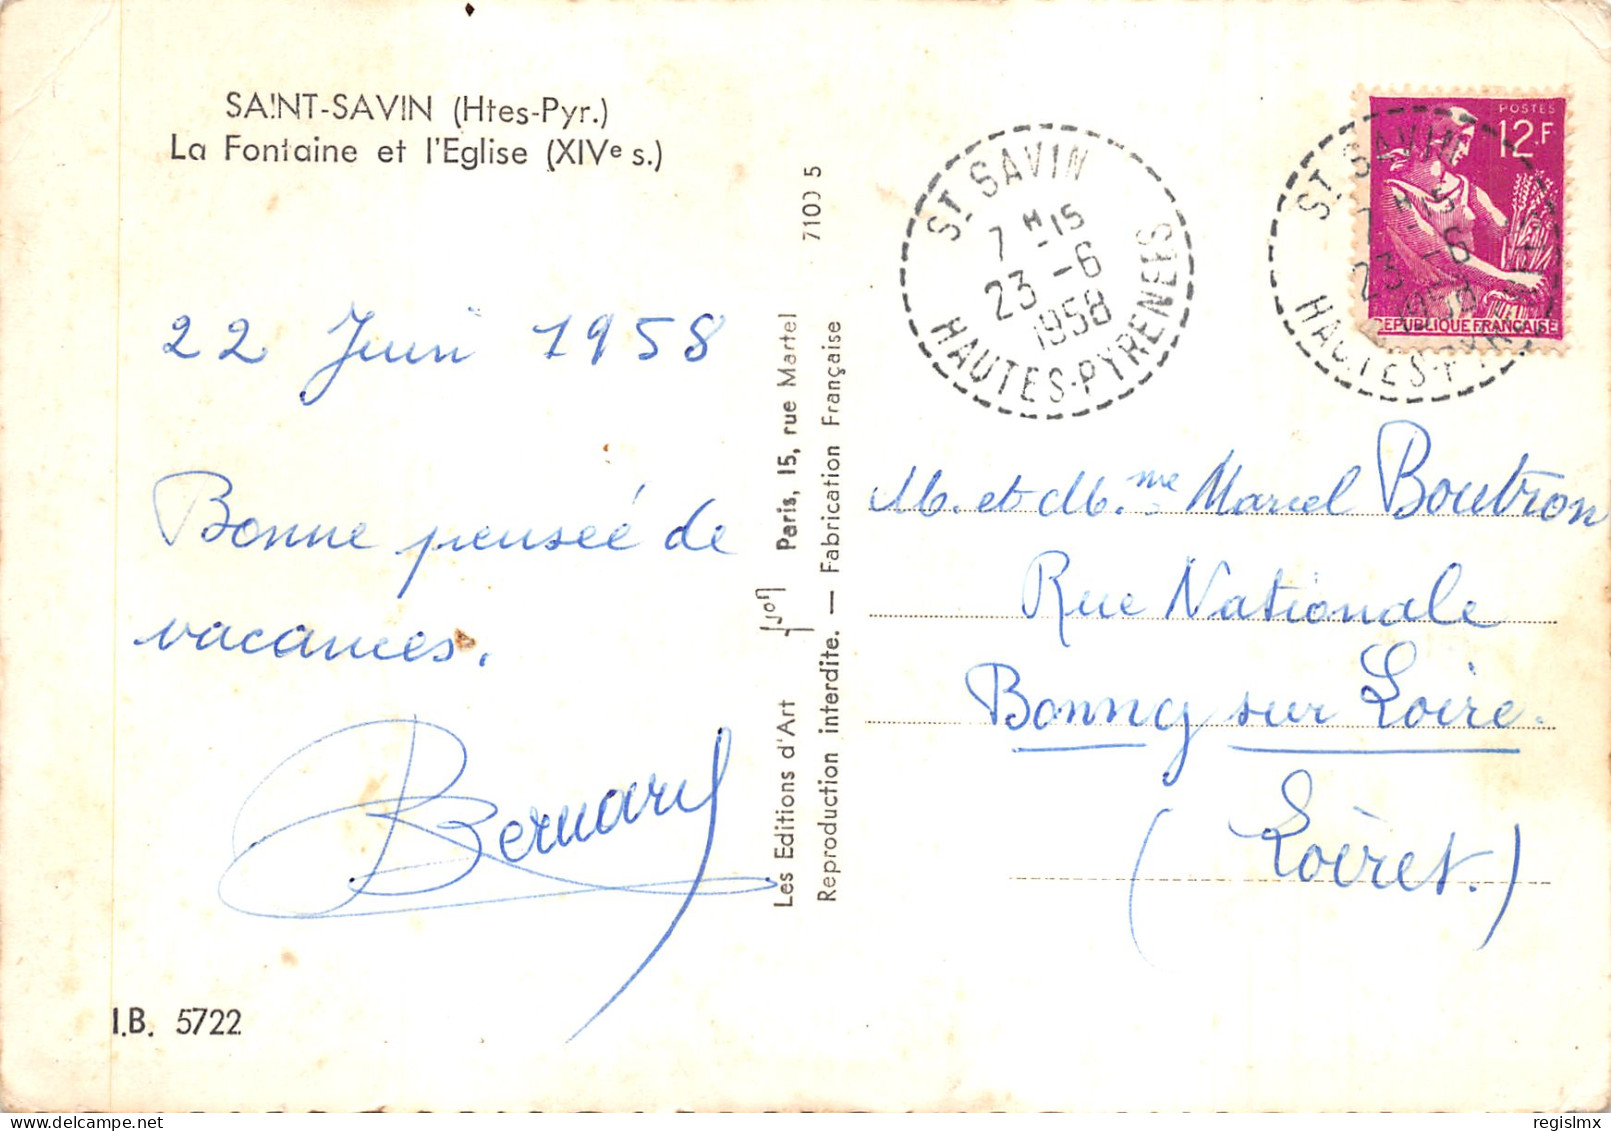 SAINT-SAVIN (Htes-Pyr.)
La Fontaine et l'Eglise (XIVe s.)
22 Juin 1958
Bonne penseé de
vacances.
Bernard
I.B. 5722
Les Editions d'Art yvon Paris, 15, rue Martel
Reproduction interdite. — Fabrication Française
7100 5
ST. SAVIN
7 H 15
23 -6
1958
HAUTES-PYRENEES
ST. SAVIN
7 H 15
23 -6
1958
HAUTES-PYR
POSTES
12.F
REPUBLIQUE FRANÇAISE
M. et M.me Marcel Boutron
Rue Nationale
Bonny sur Loire.
(Loiret.)
delcampe.net
regislmx